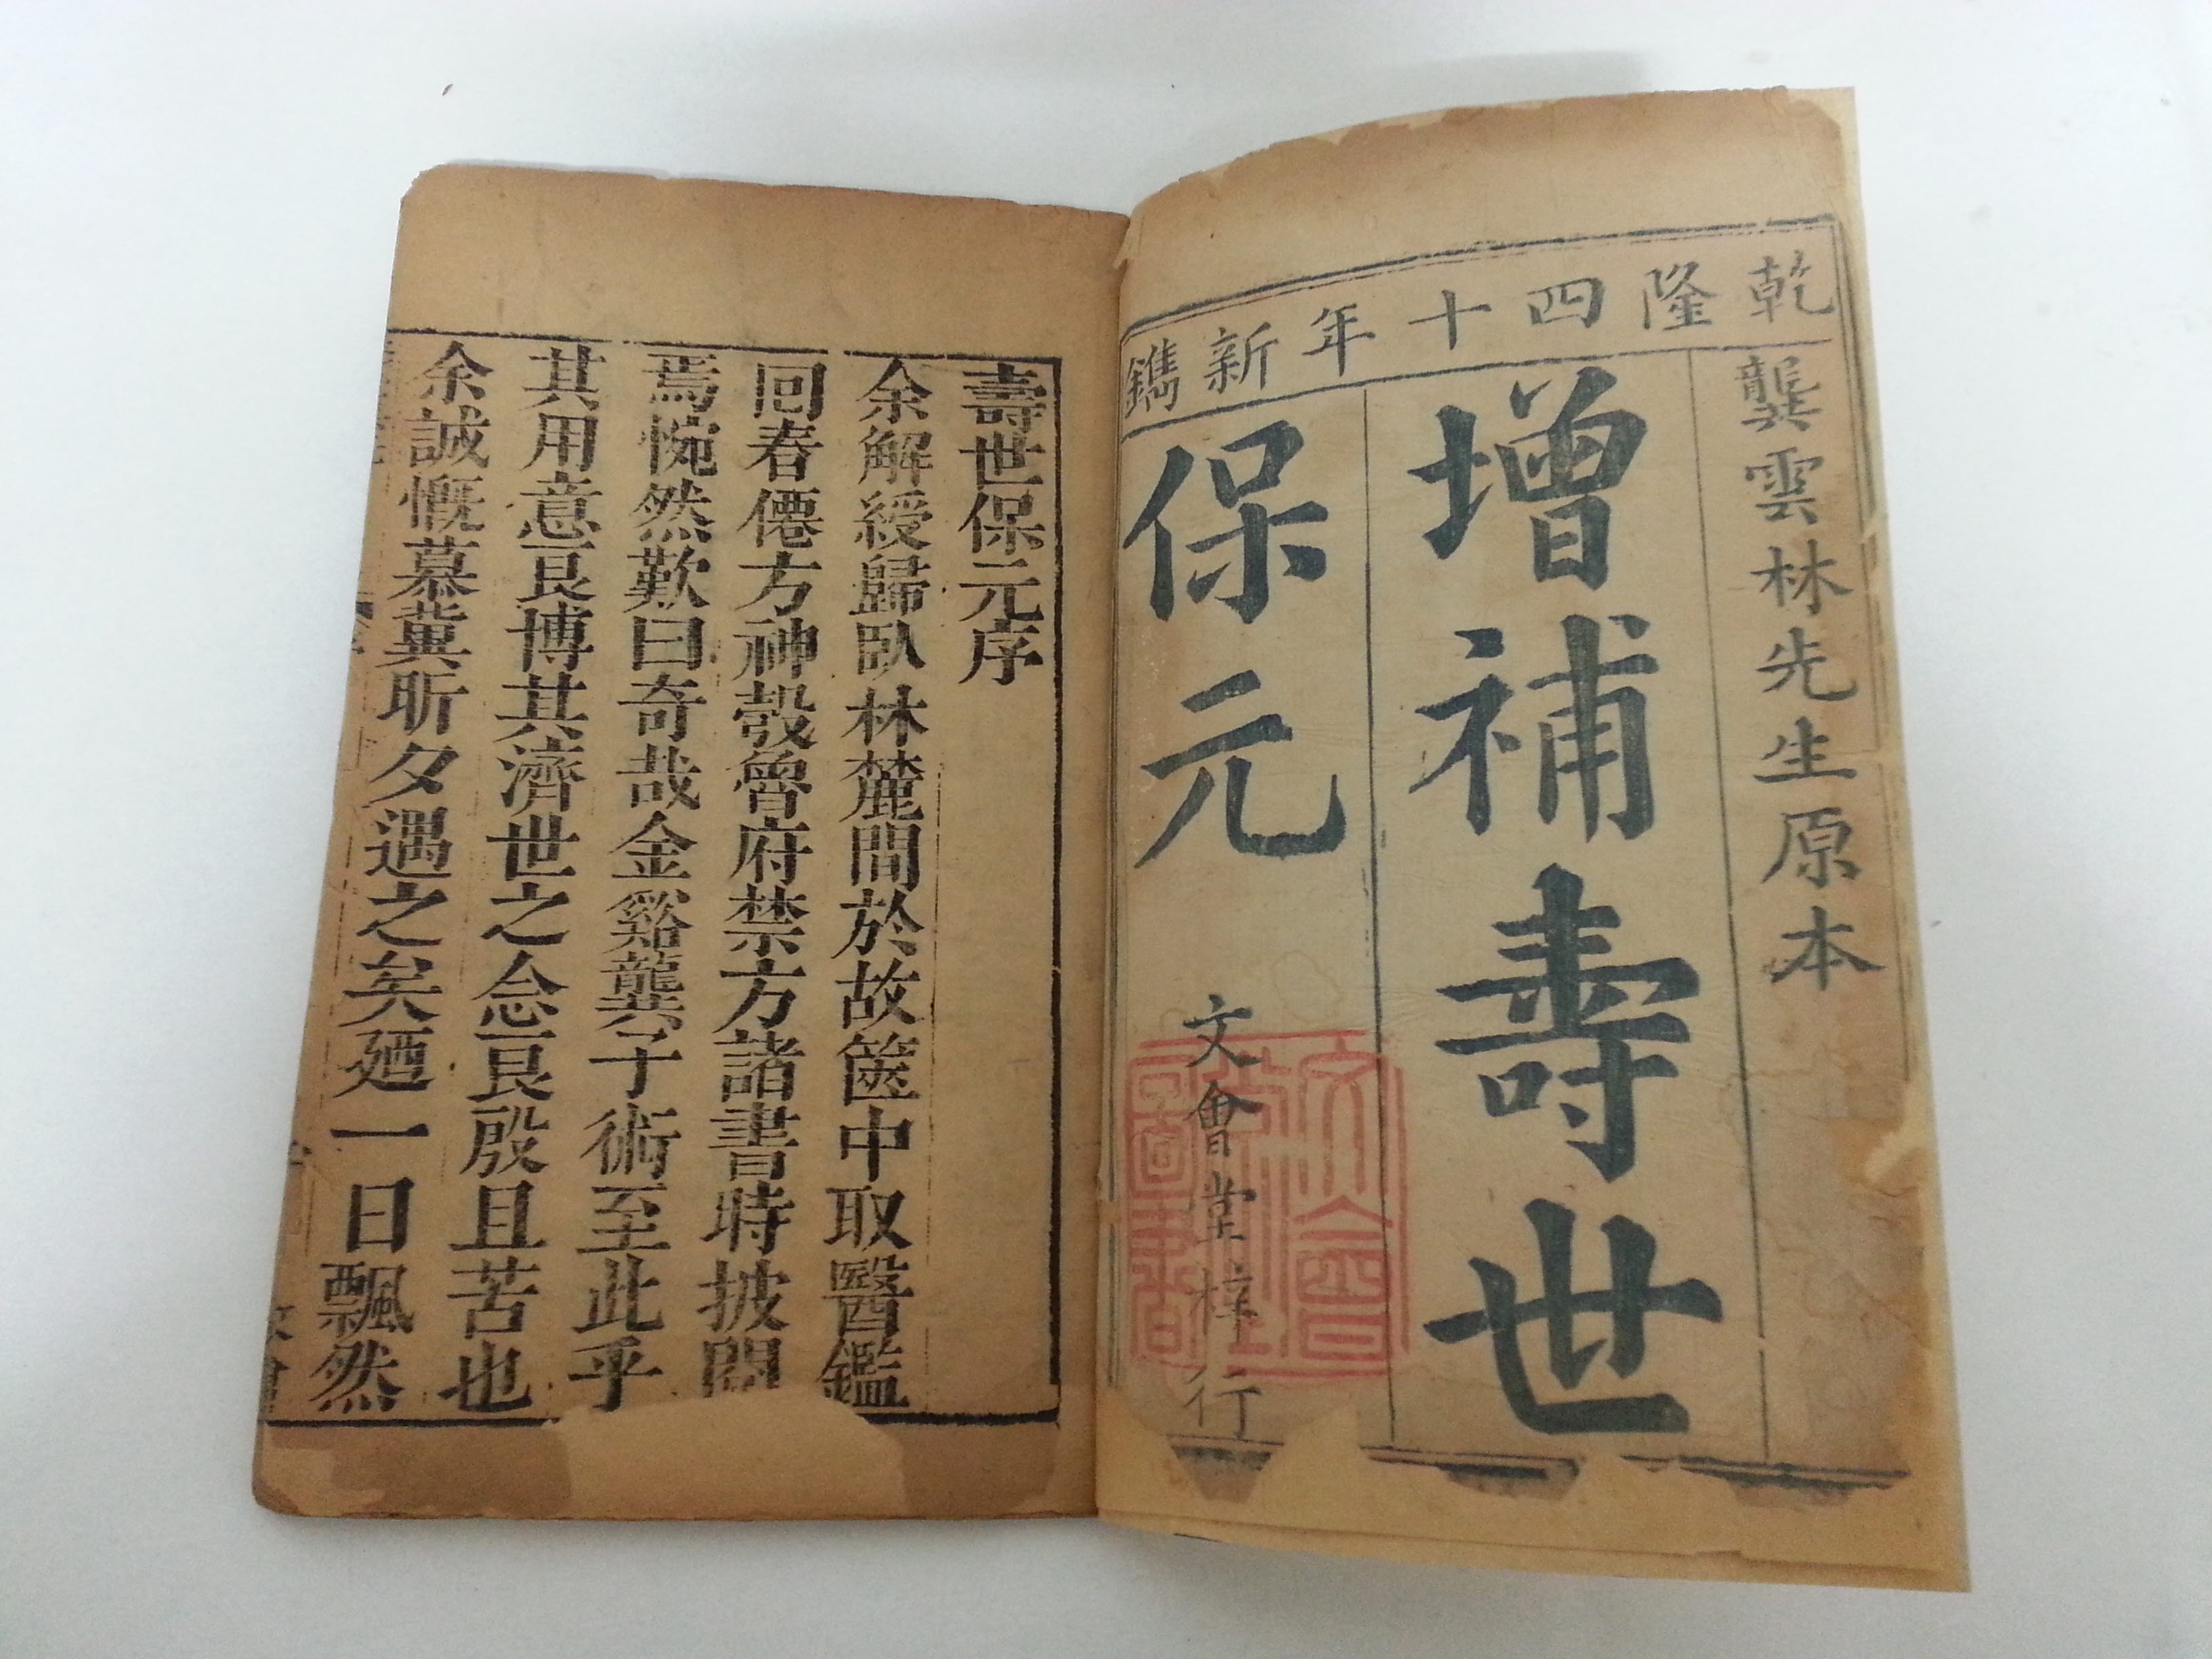 乾隆四十年新鐫
龔雲林先生原本
增補壽世
保元
文會堂梓行
壽世保元序
余解綬歸臥林麓間於故篋中取醫鑑
回春僊方神彀魯府禁方諸書時披閱
焉惋然歎曰奇哉金谿龔子術至此乎
其用意良博其濟世之念良殷且苦也
余誠慨慕冀昕夕遇之矣廼一日飄然